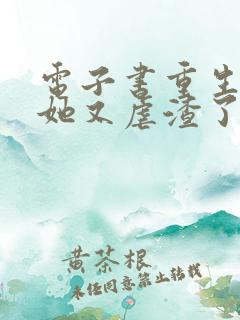 電子書重生
她又虐渣了
黄茶根
未经同意禁止转载